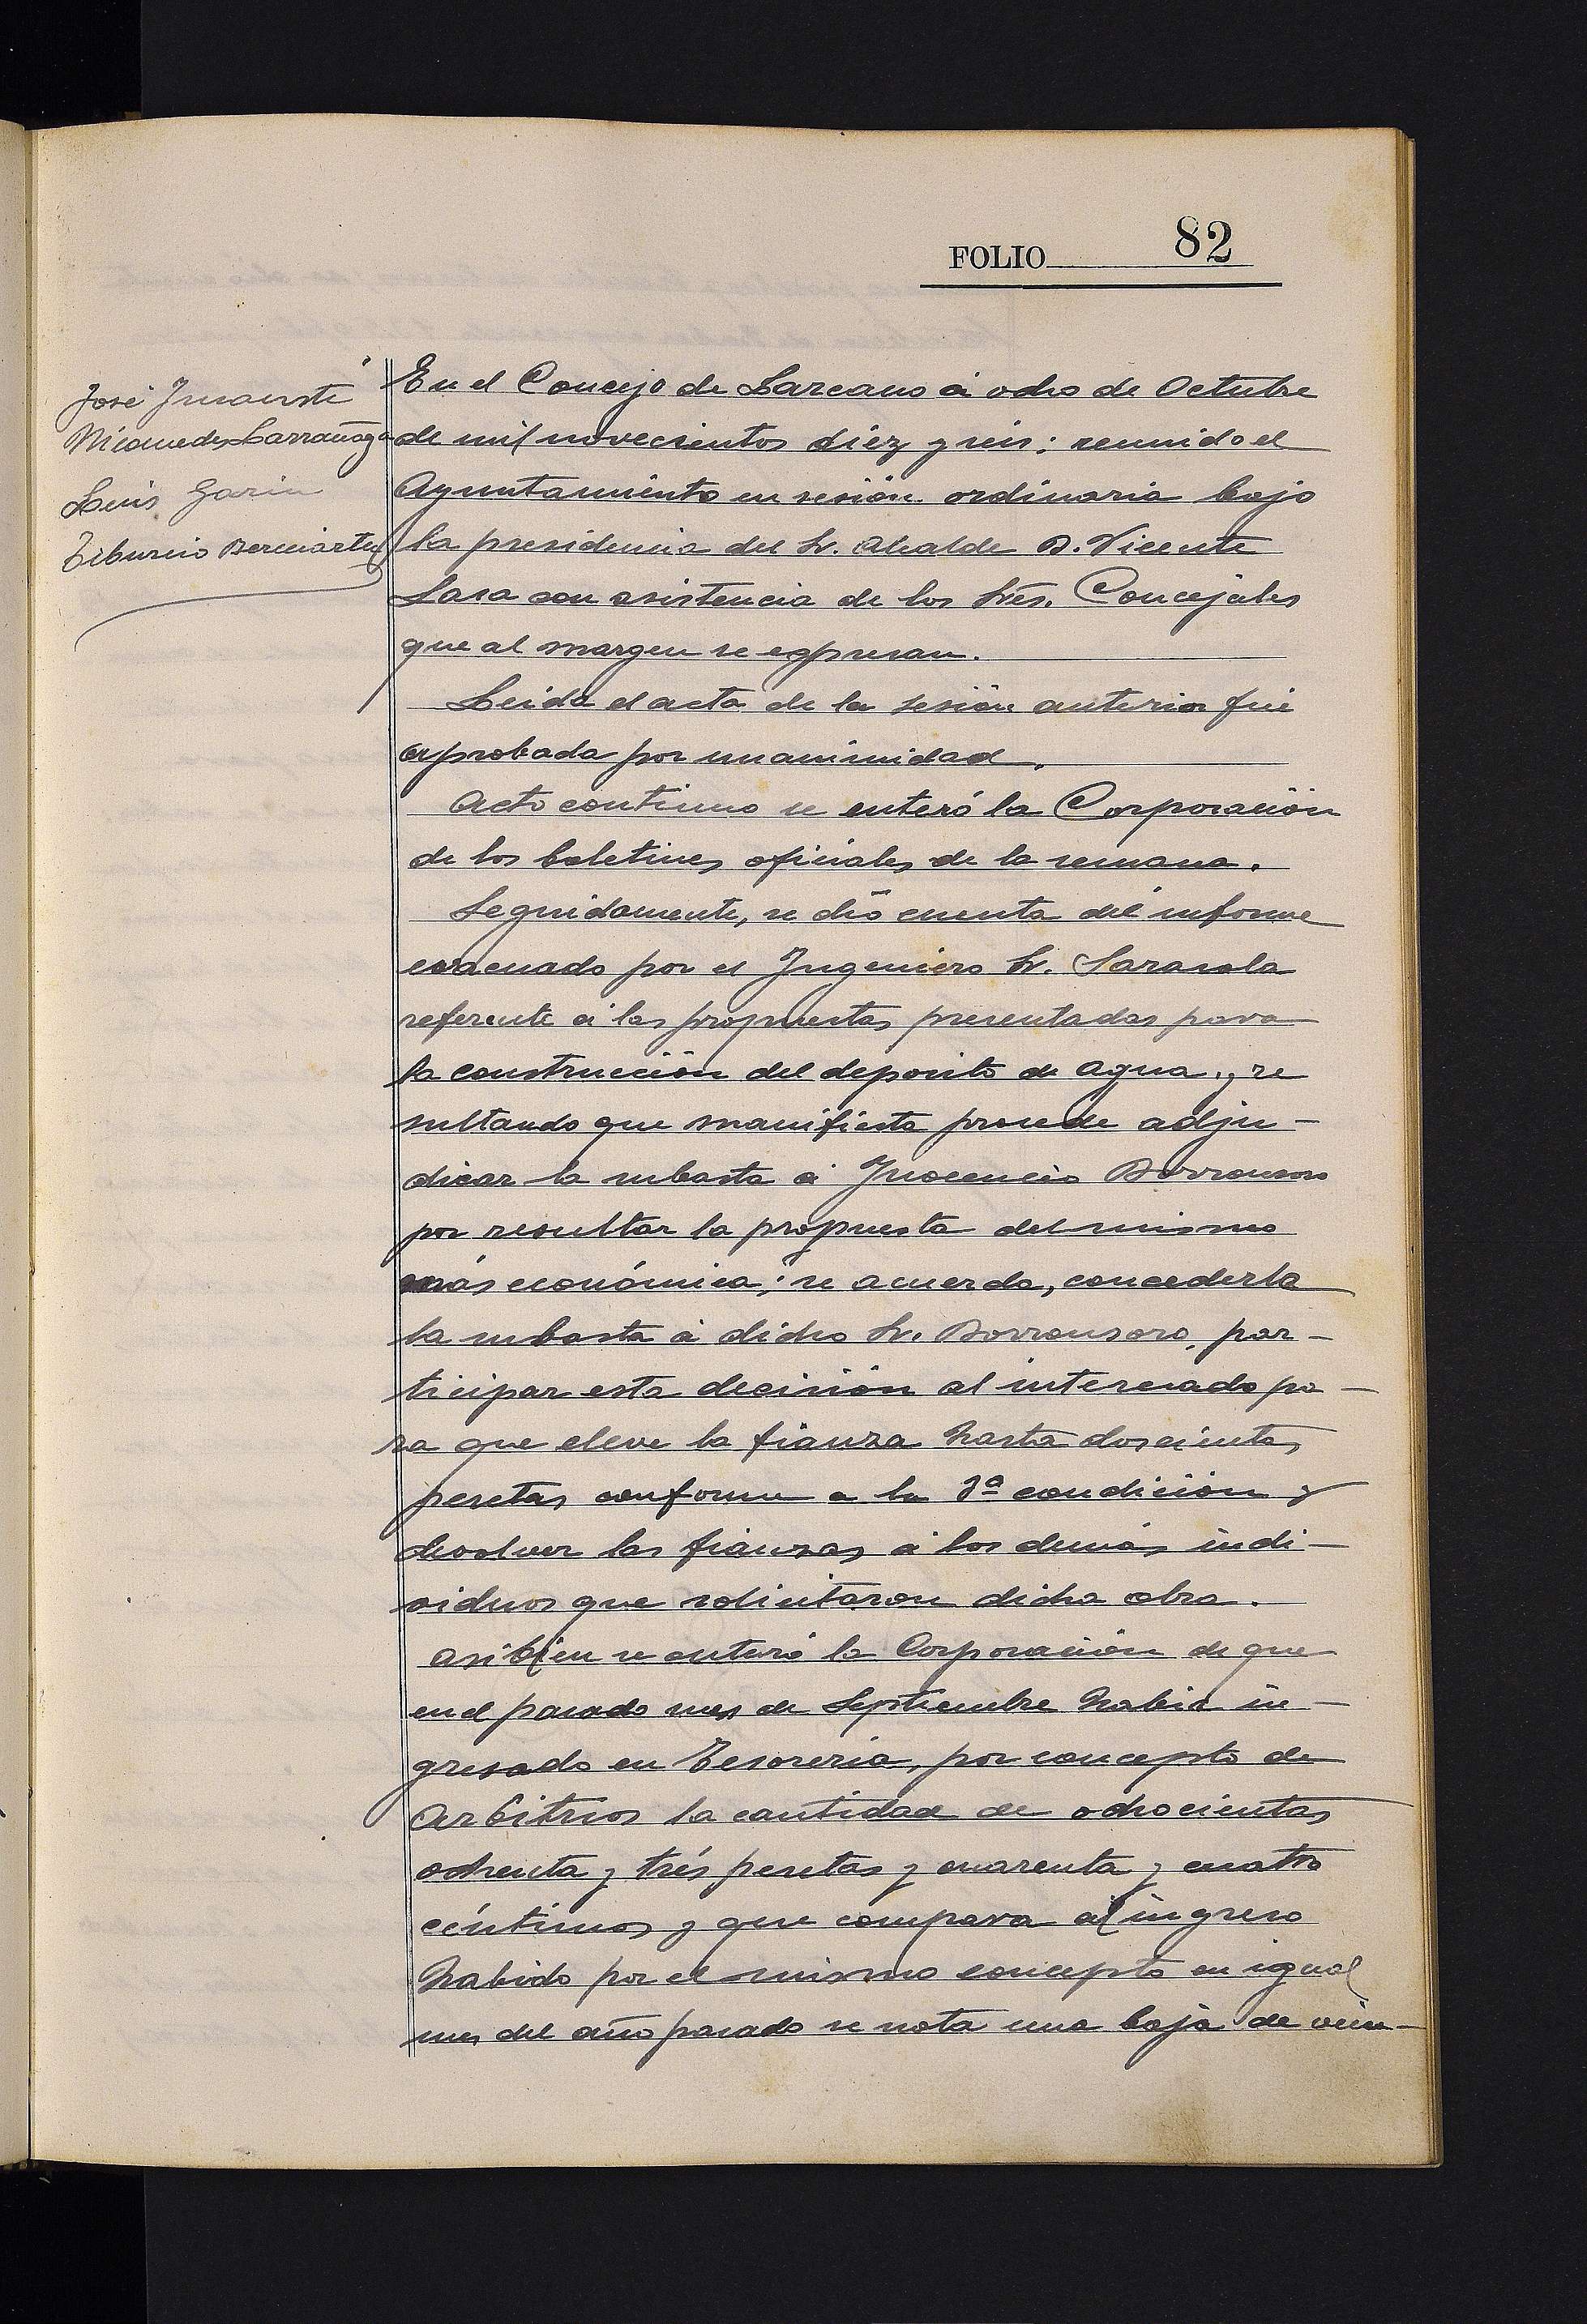 FOLIO 82
José Insausti
Nicomedes Larrañaga
Luis Garin
Tiburcio Berciartu
En el Concejo de Lazcano á ocho de Octubre
de mil novecientos diez y seis: reunido el
Ayuntamiento en sesión ordinaria bajo
la presidencia del Sr. Alcalde D. Vicente
Lasa con asistencia de los Srés. Concejales
que al margen se expresan.
Leida el acta de la sesión anterior fué
aprobada por unanimidad.
Acto continuo se enteró la Corporación
de los boletines oficiales de la semana.
Seguidamente, se dió cuenta del informe
evacuado por el Ingeniero Sr. Sarasola
referente á las propuestas presentadas para
la construcción del deposito de agua, y re
sultando que manifiesta procede adju-
dicar la subasta á Inocencio Dorronsoro
por resultar la propuesta del mismo
más económica; se acuerda, concederla
la subasta á dicho Sr. Dorronsoro, par-
ticipar esta decisión al interesado pa-
ra que eleve la fianza hasta doscientas
pesetas conforme a la 3ª condición y
devolver las fianzas á los demás indi-
viduos que solicitaron dicha obra.
Asi bien se enteró la Corporación de que
en el pasado mes de Septiembre habia in-
gresado en Tesoreria, por concepto de
Arbitrios la cantidad de ochocientas
ochenta y trés pesetas y cuarenta y cuatro
céntimos y que compara al ingreso
habido por el mismo concepto en igual
mes del año pasado se nota una baja de vein-